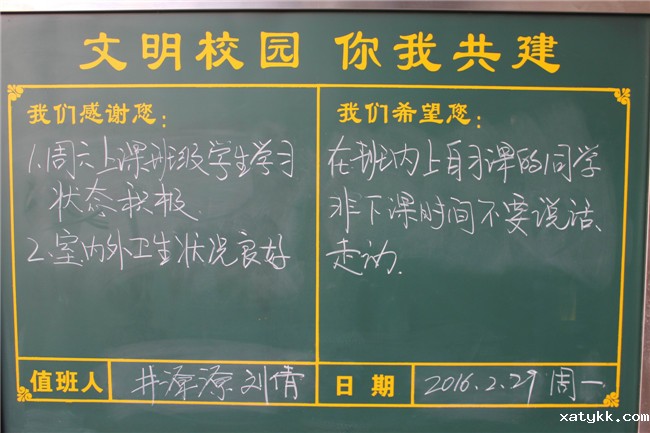 文明校园 你我共建
我们感谢您:
1.周六上课班级学生学习
状态积极.
2.室内外卫生状况良好
我们希望您:
在班内上自习课的同学
非下课时间不要说话、
走动.
值班人
井源源 刘倩
日期
2016.2.29 周一
xatykk.com